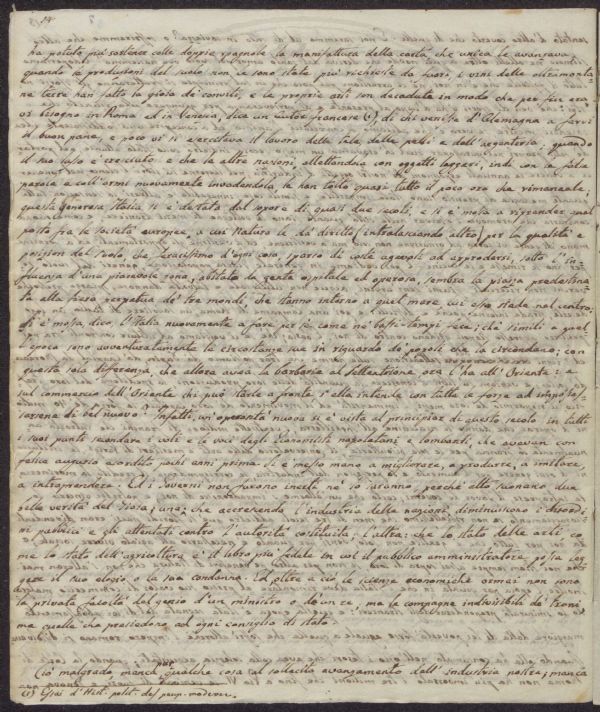 14.
ha potuto più sostener colle doppie spagnole la manifattura della carta che unica le avanzava
quando le produzioni del suolo non ce sono state più richieste da fuori, i vini delle oltramonta-
ne terre han fatto la gloria de' conviti, e le proprie arti son decadute in modo che per fine era-
vi bisogno in Roma ed in Venezia, dice un autor francese (1), di chi venisse d'Alemagna a farvi
il buon pane, e poco vi si esercitava il lavoro della tela, delle pelli e dell'argenteria; quando
il suo lusso è cresciuto e che le altre nazioni allettandola con oggetti leggeri, indi con la falsa
parola e coll'armi nuovamente invadendola le han tolto quasi tutto il poco oro che rimaneale;
questa generosa Italia si è destata dal sopore di quasi due secoli, e si è mossa a riprender quel
posto fra le società europee, a cui Natura le dà diritto (intralasciando altro) per la qualità e
posizion del suolo, che feracissimo d'ogni cosa, sparso di coste agevoli ad approdarsi, sotto l'in-
fluenza d'una piacevole zona, abitato da gente ospitale ed operosa sembra la piazza predestina-
ta alla fiera perpetua de' tre mondi, che stanno intorno a quel mare cui essa siede nel centro.
Si è mossa, dico, l'Italia nuovamente a fare per sè come ne' bassi-tempi fece; chè simili a quel-
l'epoca sono avventuratamente le circostanze sue in riguardo de' popoli che la circondano; con
questa sola differenza, che allora avea la barbarie al settentrione ora l'ha all'Oriente: e
sul commercio dell'Oriente chi può starle a fronte s'ella intende con tutte le forze ad impos-
sessarsene di bel nuovo? Infatti un'operosità nuova si è vista al principiar di questo secolo in tutti
i suoi punti secondare i voti e le voci degli Economisti napolitani e lombardi, che avevan con
felice augurio esordito pochi anni prima. Si è messo mano a migliorare, a produrre, a imitare,
a intraprendere. Ed i Governi non furono inerti nè lo saranno, perchè alto suonano due
belle verità del Gioia; una, che accrescendo l'industria delle nazioni diminuiscono i disordi-
ni pubblici e gli attentati contro l'autorità costituita; l'altra, che lo stato delle arti, co-
me lo stato dell'agricoltura è il libro più fedele in cui il pubblico amministratore possa leg-
gere il suo elogio o la sua condanna. Ed oltre a ciò le scienze economiche ormai non sono
la privata facoltà del genio d'un ministro o d'un re, ma le compagne indivisibili de' troni
me quelle che presiedono ad ogni consiglio di stato.
Ciò malgrado manca pur qualche cosa al sollecito avanzamento dell'industria nostra; manca
(1) Essai d'Hist. polit. des peup. modernes.